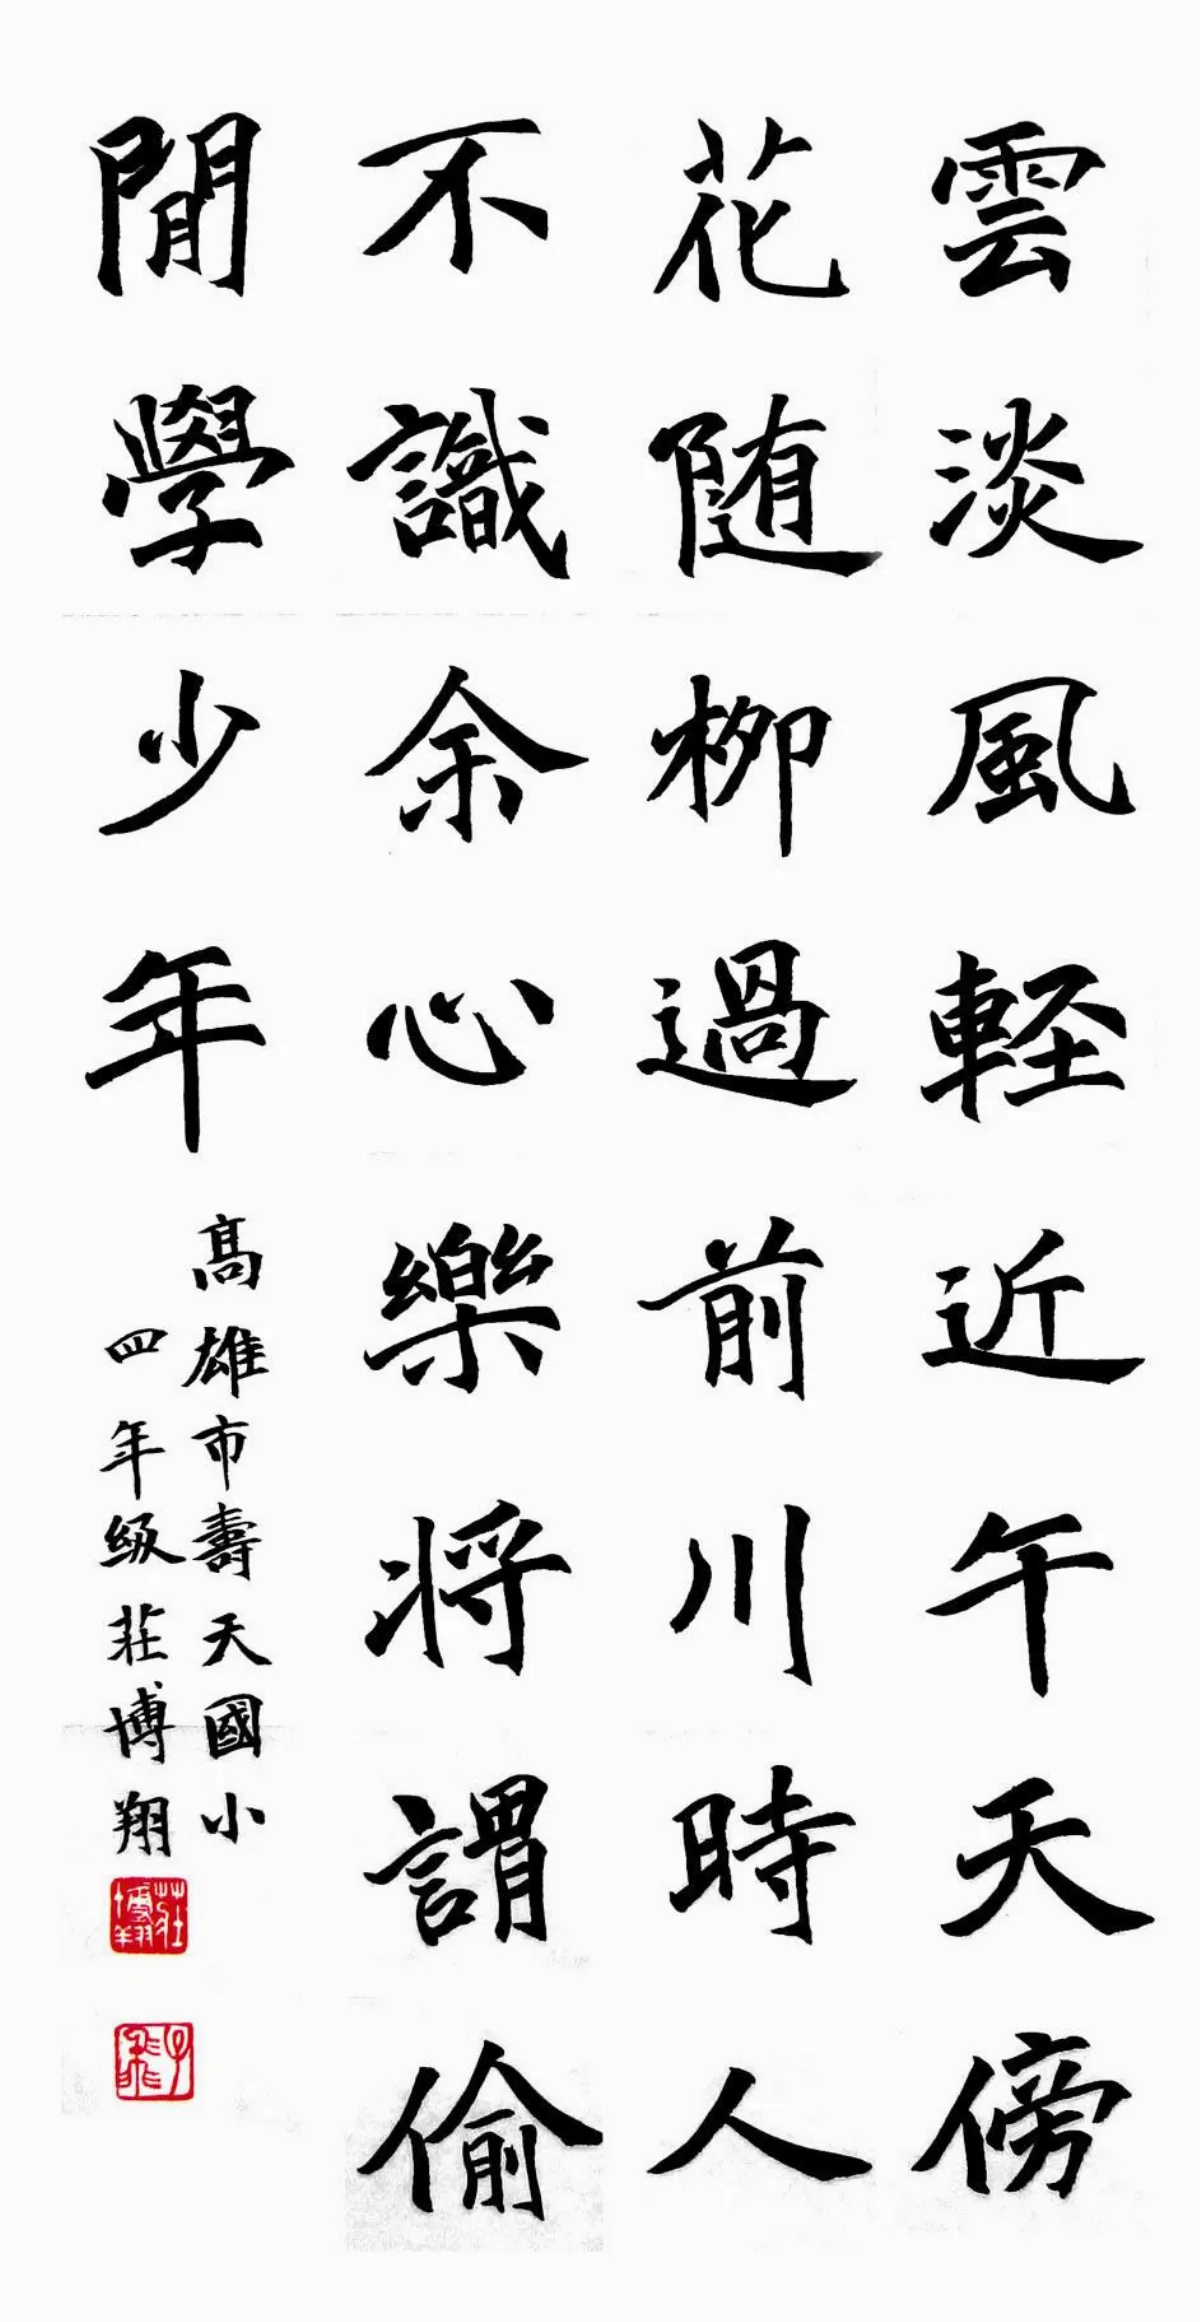 雲淡風軽近午天傍
花随柳過前川時人
不識余心樂将謂偷
閒學少年
高雄市壽天國小
四年級莊博翔
莊博翔